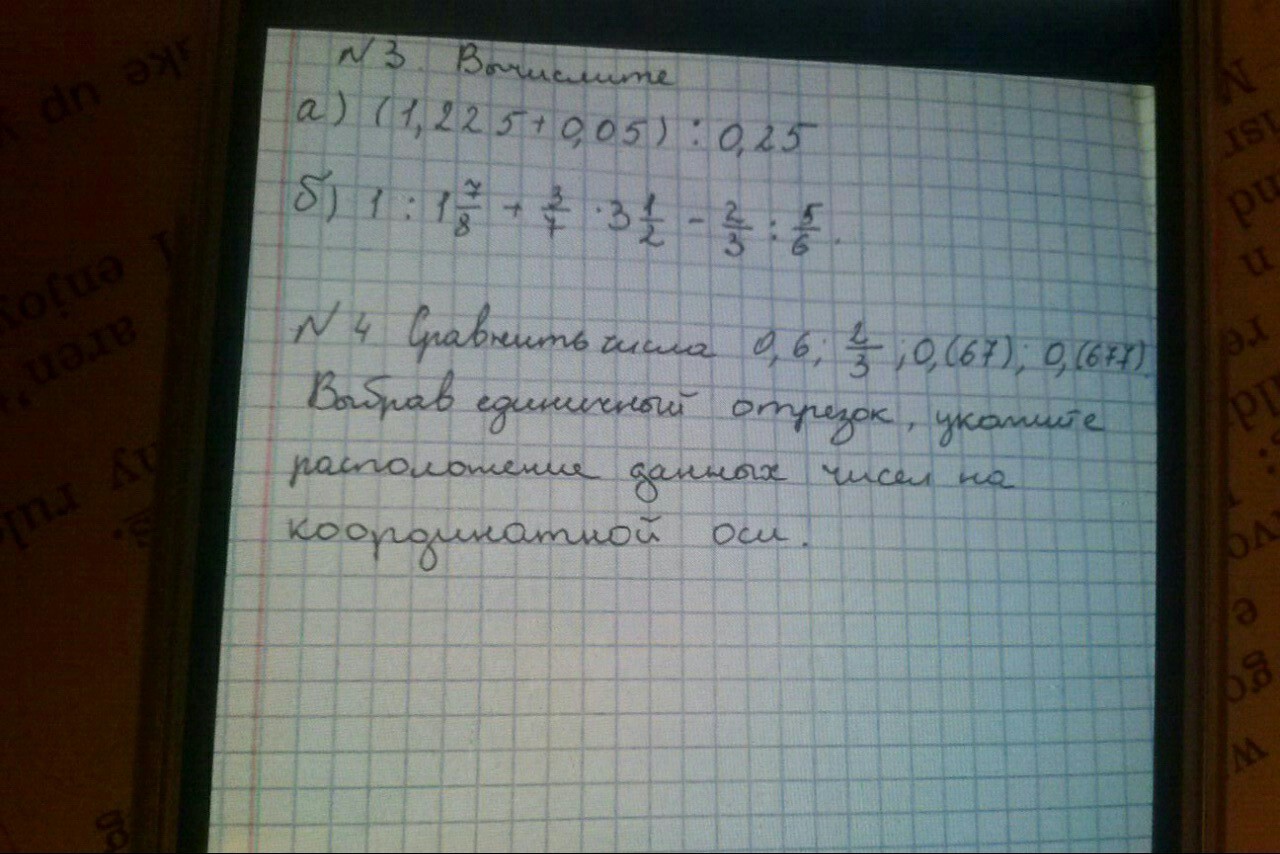 N 3. Вычислите
а) (1,225 + 0,05) : 0,25
б) 1 : 1 7/8 + 3/7 · 3 1/2 - 2/3 : 5/6.
N 4 Сравнить числа 0,6; 2/3; 0,(67); 0,(677).
Выбрав единичный отрезок, укажите
расположение данных чисел на
координатной оси.
ke up
I enjoy
aren't
my
rule
g
M
nd
n
re
go
w